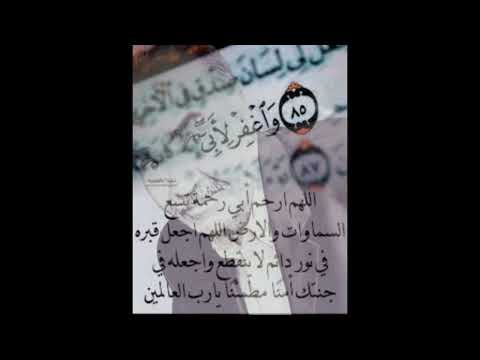 لى لسان صدق في الآخ
٨٥ وَٱغْفِرْ لِأَبِىٓ
٨٧
اللهم ارحم أبي رحمة تسع
السماوات والارض اللهم اجعل قبره
في نور دائم لا ينقطع واجعله في
جنتك آمنًا مطمئنا يارب العالمين